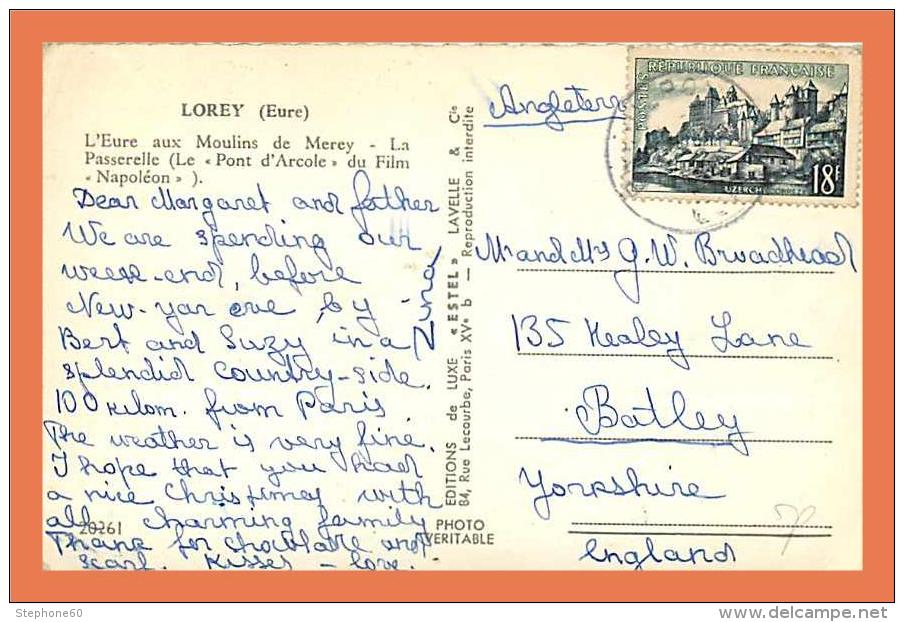 LOREY (Eure)
L'Eure aux Moulins de Merey - La
Passerelle (Le « Pont d'Arcole » du Film
« Napoléon » ).
Dear Margaret and father
We are spending our
week-end, before
New-yar eve, by
Bert and Suzy, in a
splendid country-side.
100 kilom. from Paris.
The weather is very fine.
I hope that you had
a nice Christmes with
all charming family
Thank for chocolate and
scarf. Kisses - love.
Nina
20261
PHOTO
VERITABLE
EDITIONS de LUXE « ESTEL » LAVELLE & Cie
84, Rue Lecourbe, Paris XVe b — Reproduction interdite
Angleterre
POSTES
RÉPUBLIQUE FRANÇAISE
UZERCHE
18F
Mr and Mrs G. W. Broadhead
135 Healey Lane
Batley
Yorkshire
England
Stephone60
www.delcampe.net